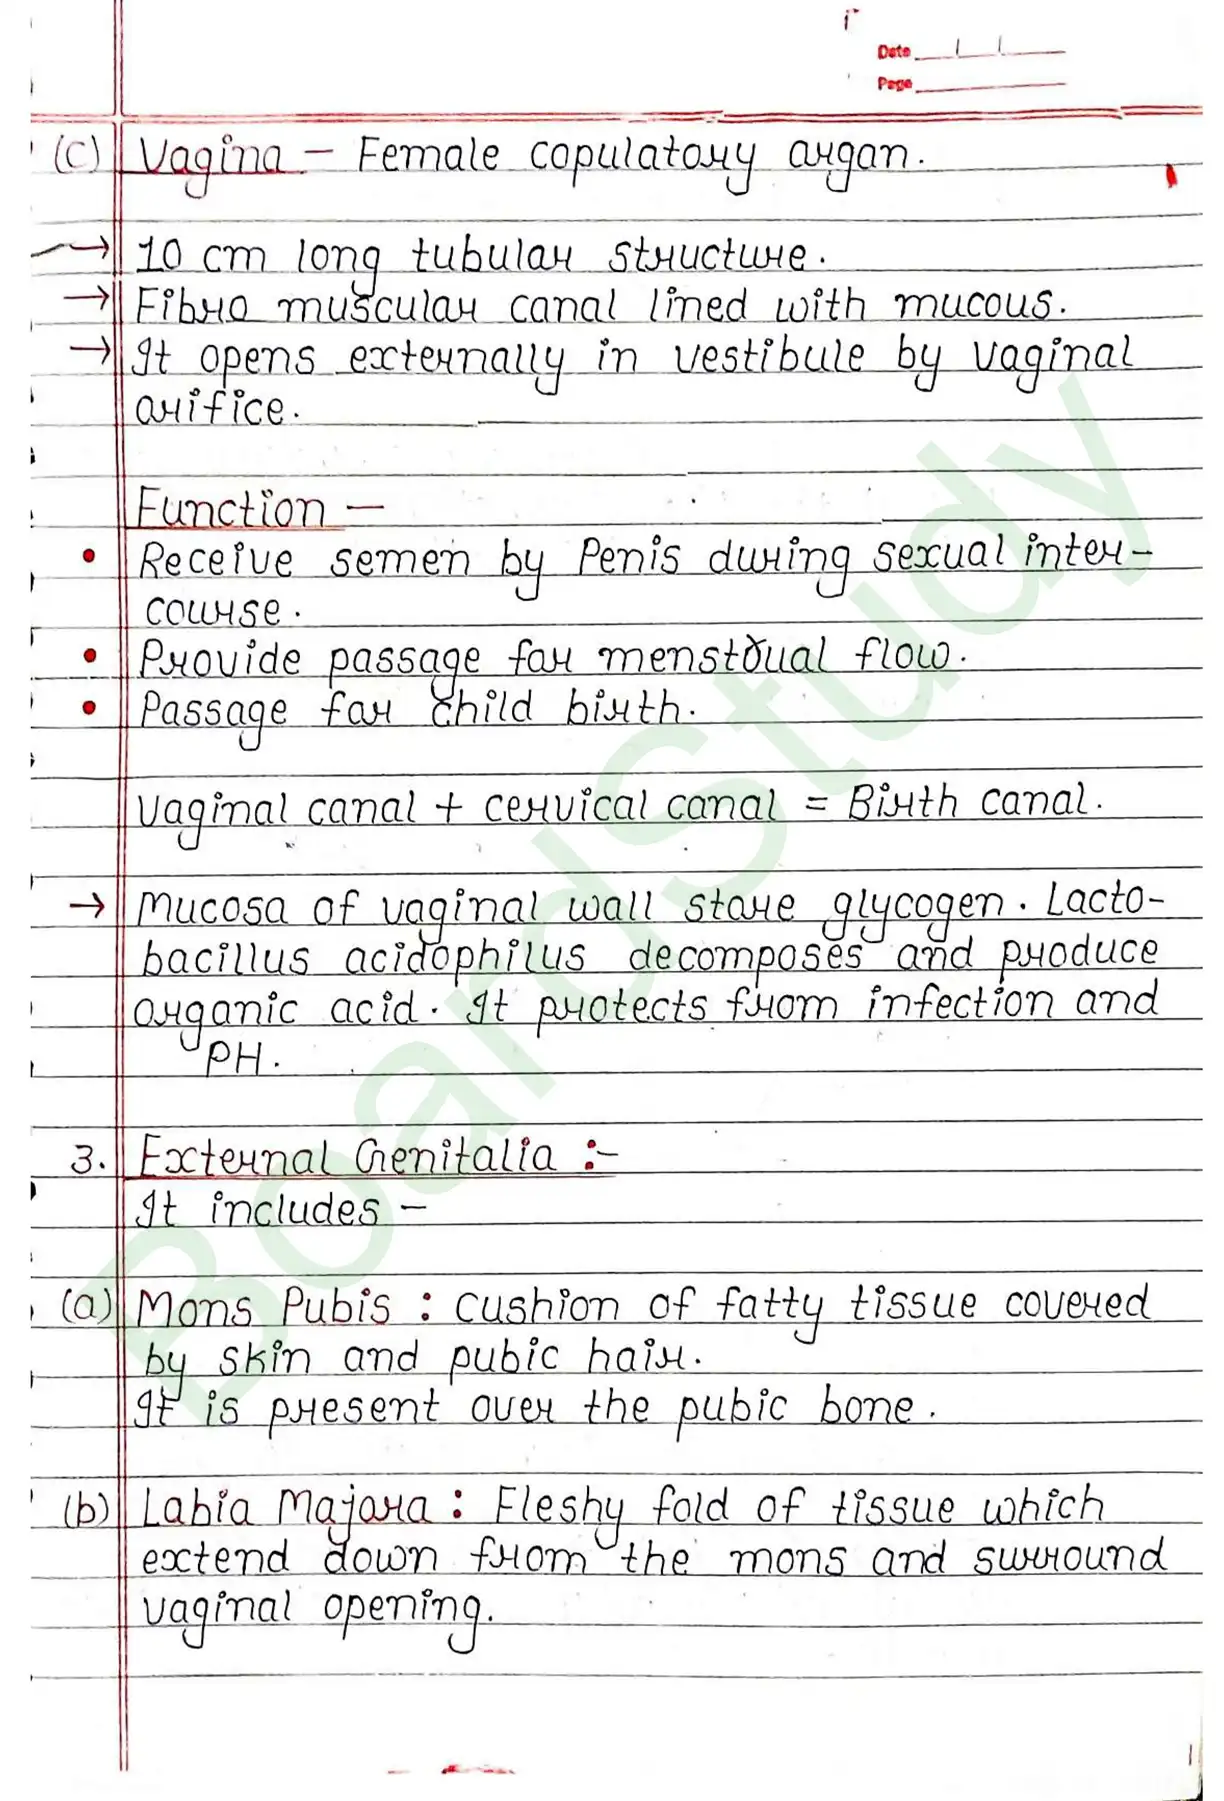 Date
Page
(c) Vagina - Female copulatory organ.
→ 10 cm long tubular structure.
→ Fibro muscular canal lined with mucous.
→ It opens externally in vestibule by vaginal
orifice.
Function -
• Receive semen by Penis during sexual inter-
course.
• Provide passage for menstrual flow.
• Passage for child birth.
Vaginal canal + cervical canal = Birth canal.
→ Mucosa of vaginal wall store glycogen. Lacto-
bacillus acidophilus decomposes and produce
organic acid. It protects from infection and
PH.
3. External Genitalia :-
It includes -
(a) Mons Pubis : cushion of fatty tissue covered
by skin and pubic hair.
It is present over the pubic bone.
(b) Labia Majora : Fleshy fold of tissue which
extend down from the mons and surround
vaginal opening.
BoardStudy